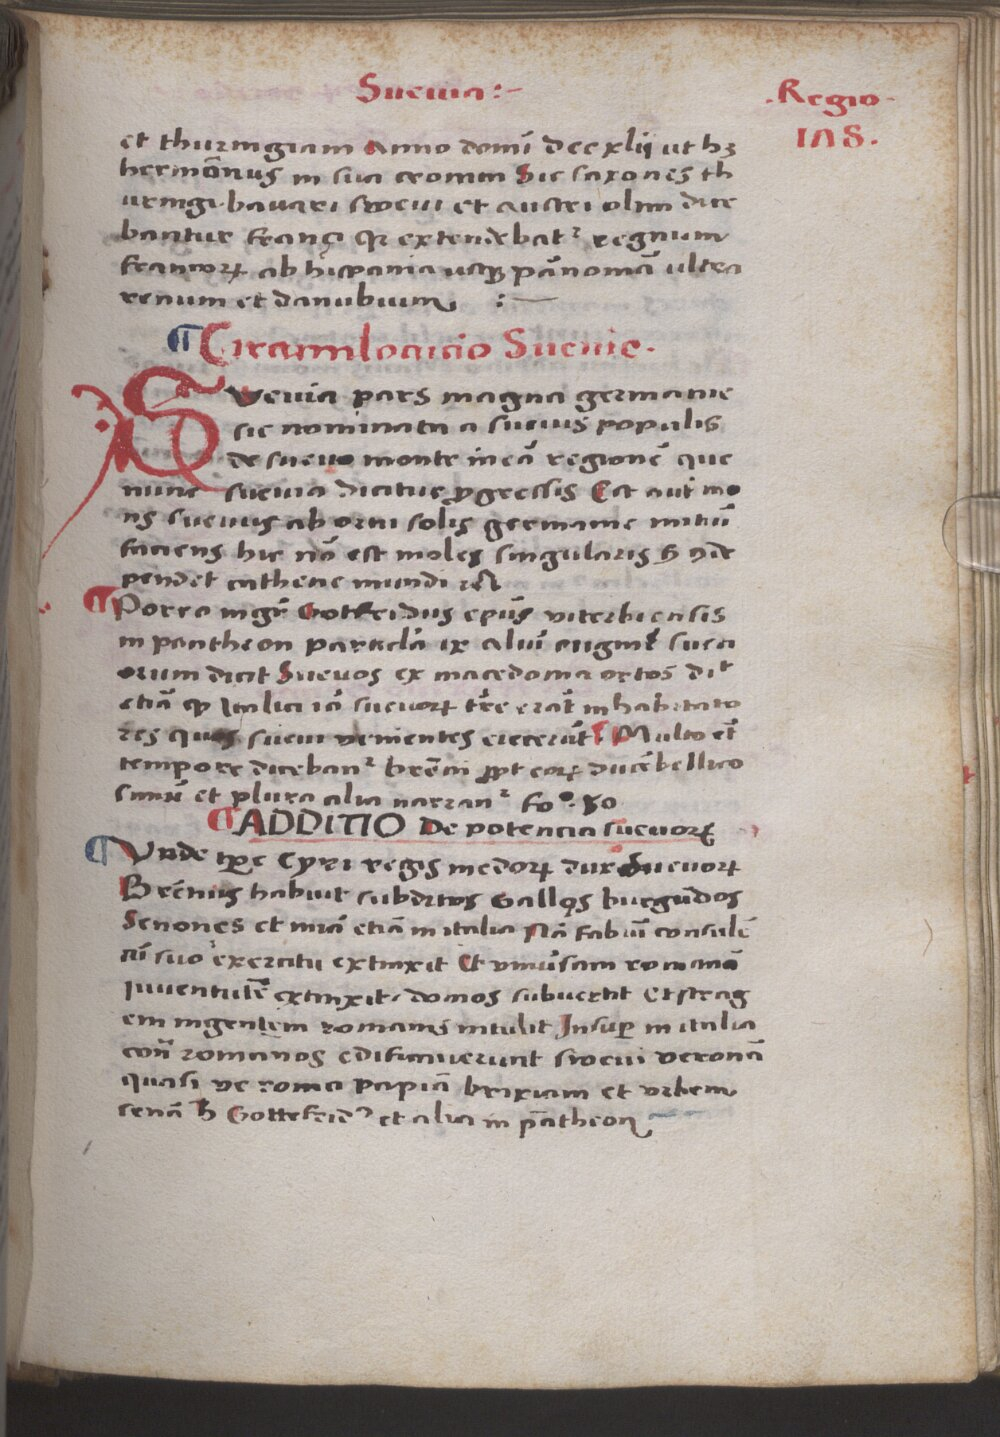 Sueuia:-
.Regio.
IAS.
et thuringiam Anno domĩ Dccxlij ut hʒ
hermãnus in sua cronica Sic saxones th
uringi bauari sweui et austri olim dice
bantur franci qꝛ extendebatᷣ regnum
francorꝝ ab hispania usqꝫ pãnoniã ultra
renum et danubium :—
¶Circumlocucio Sueuie.
Sweuia pars magna germanie
sic nominata a sueuis populis
de sueuo monte in eã regionẽ que
nunc sueuia dicitur ꝓgressis Est aut̃ mo
ns sueuus ab ortu solis germanie initiũ
faciens hic nõ est moles singularis
pendet cathene mundi
¶Porro mgr̃ Gotfridus ep̃us viterbiensis
in pantheon particĩa ix
orum dicit Sueuos ex macedonia ortos di
etiã ꝙ Italici iã sueuorꝝ tr̃e erãt inhabitato
res quos sueui venientes eiecerũt ¶ Multo et̃
tempore diceban᷑ breñi ꝓpt eorꝝ ducẽ bellico
simũ et plura alia narran᷑ fo. 50
¶ADDITIO De potencia sueuorꝝ
¶Unde tp̃e Cyri regis medorꝝ dux Sueuorꝝ
Brẽnus habuit subditos Gallos burgũdos
Senones et etiã in italia Nã fabiũ consulẽ
cũ suo exercitu extinxit Et vniũsam romanã
iuuentutẽ extinxit, domos subuertit Et strag
em ingentem romanis intulit Insuꝑ in italia
con̄ romanos edificauerunt sweui veronã
quasi ve roma papiã brixiam et vrbem
senã Gottefrid⁹ et alia in pãtheon